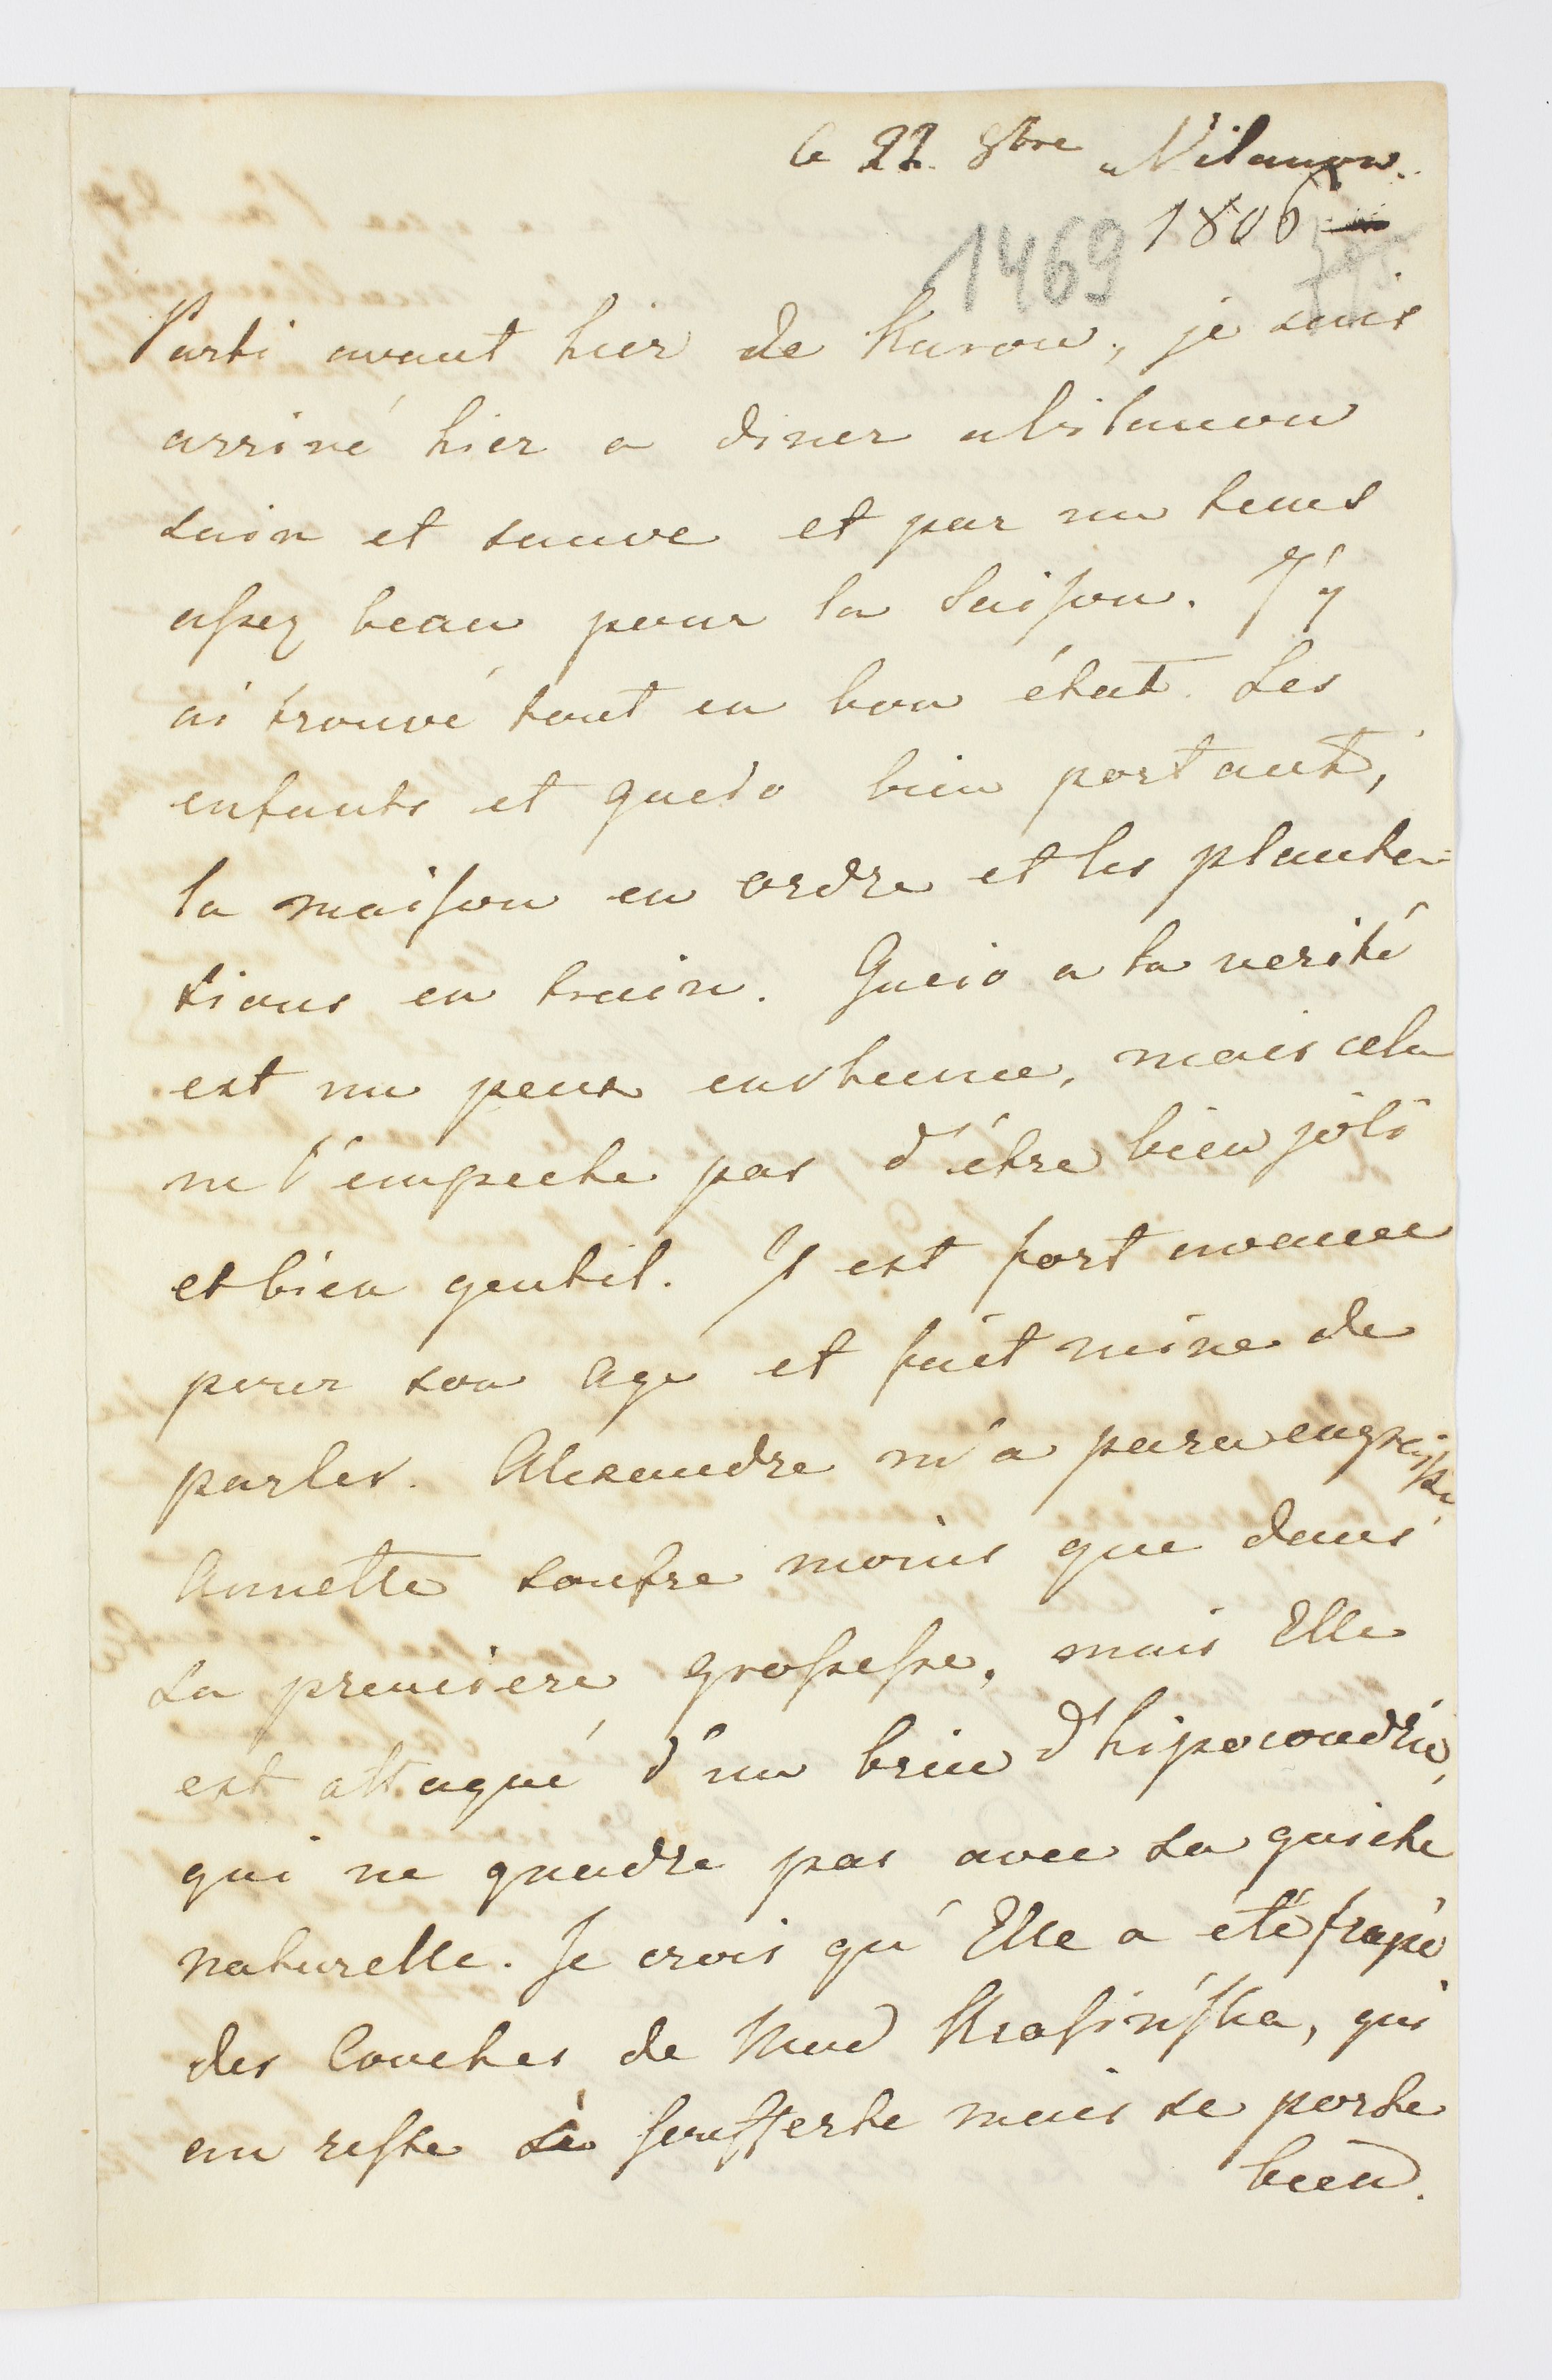 le 22. 8bre a Vilanow.
1806
1469
Parti avant hier de Kurow, je suis
arrivé hier a diner a Vilanow
sain et sauve et par un tems
assez beau pour la Saison. J'y
ai trouvé tout en bon état. Les
enfants et Gucio bien portant,
la maison en ordre et les planta=
tions en train. Gucio a la verité
est un peux enrhume, mais cela
ne l'empeche pas d'étre bien joli
et bien gentil. Il est fort avance
pour son age et fait mine de
parler. Alexandre m'a paru engraisse
Annette soufre moins que dans
sa premiere grossesse, mais Elle
est attaqué d'un brin d'hipocondrie,
qui ne quadre pas avec sa gaiete
naturelle. Je crois qu'Elle a été frapé
des Couches de Mad Krasinska, qui
au reste souffert mais se porte
bien.